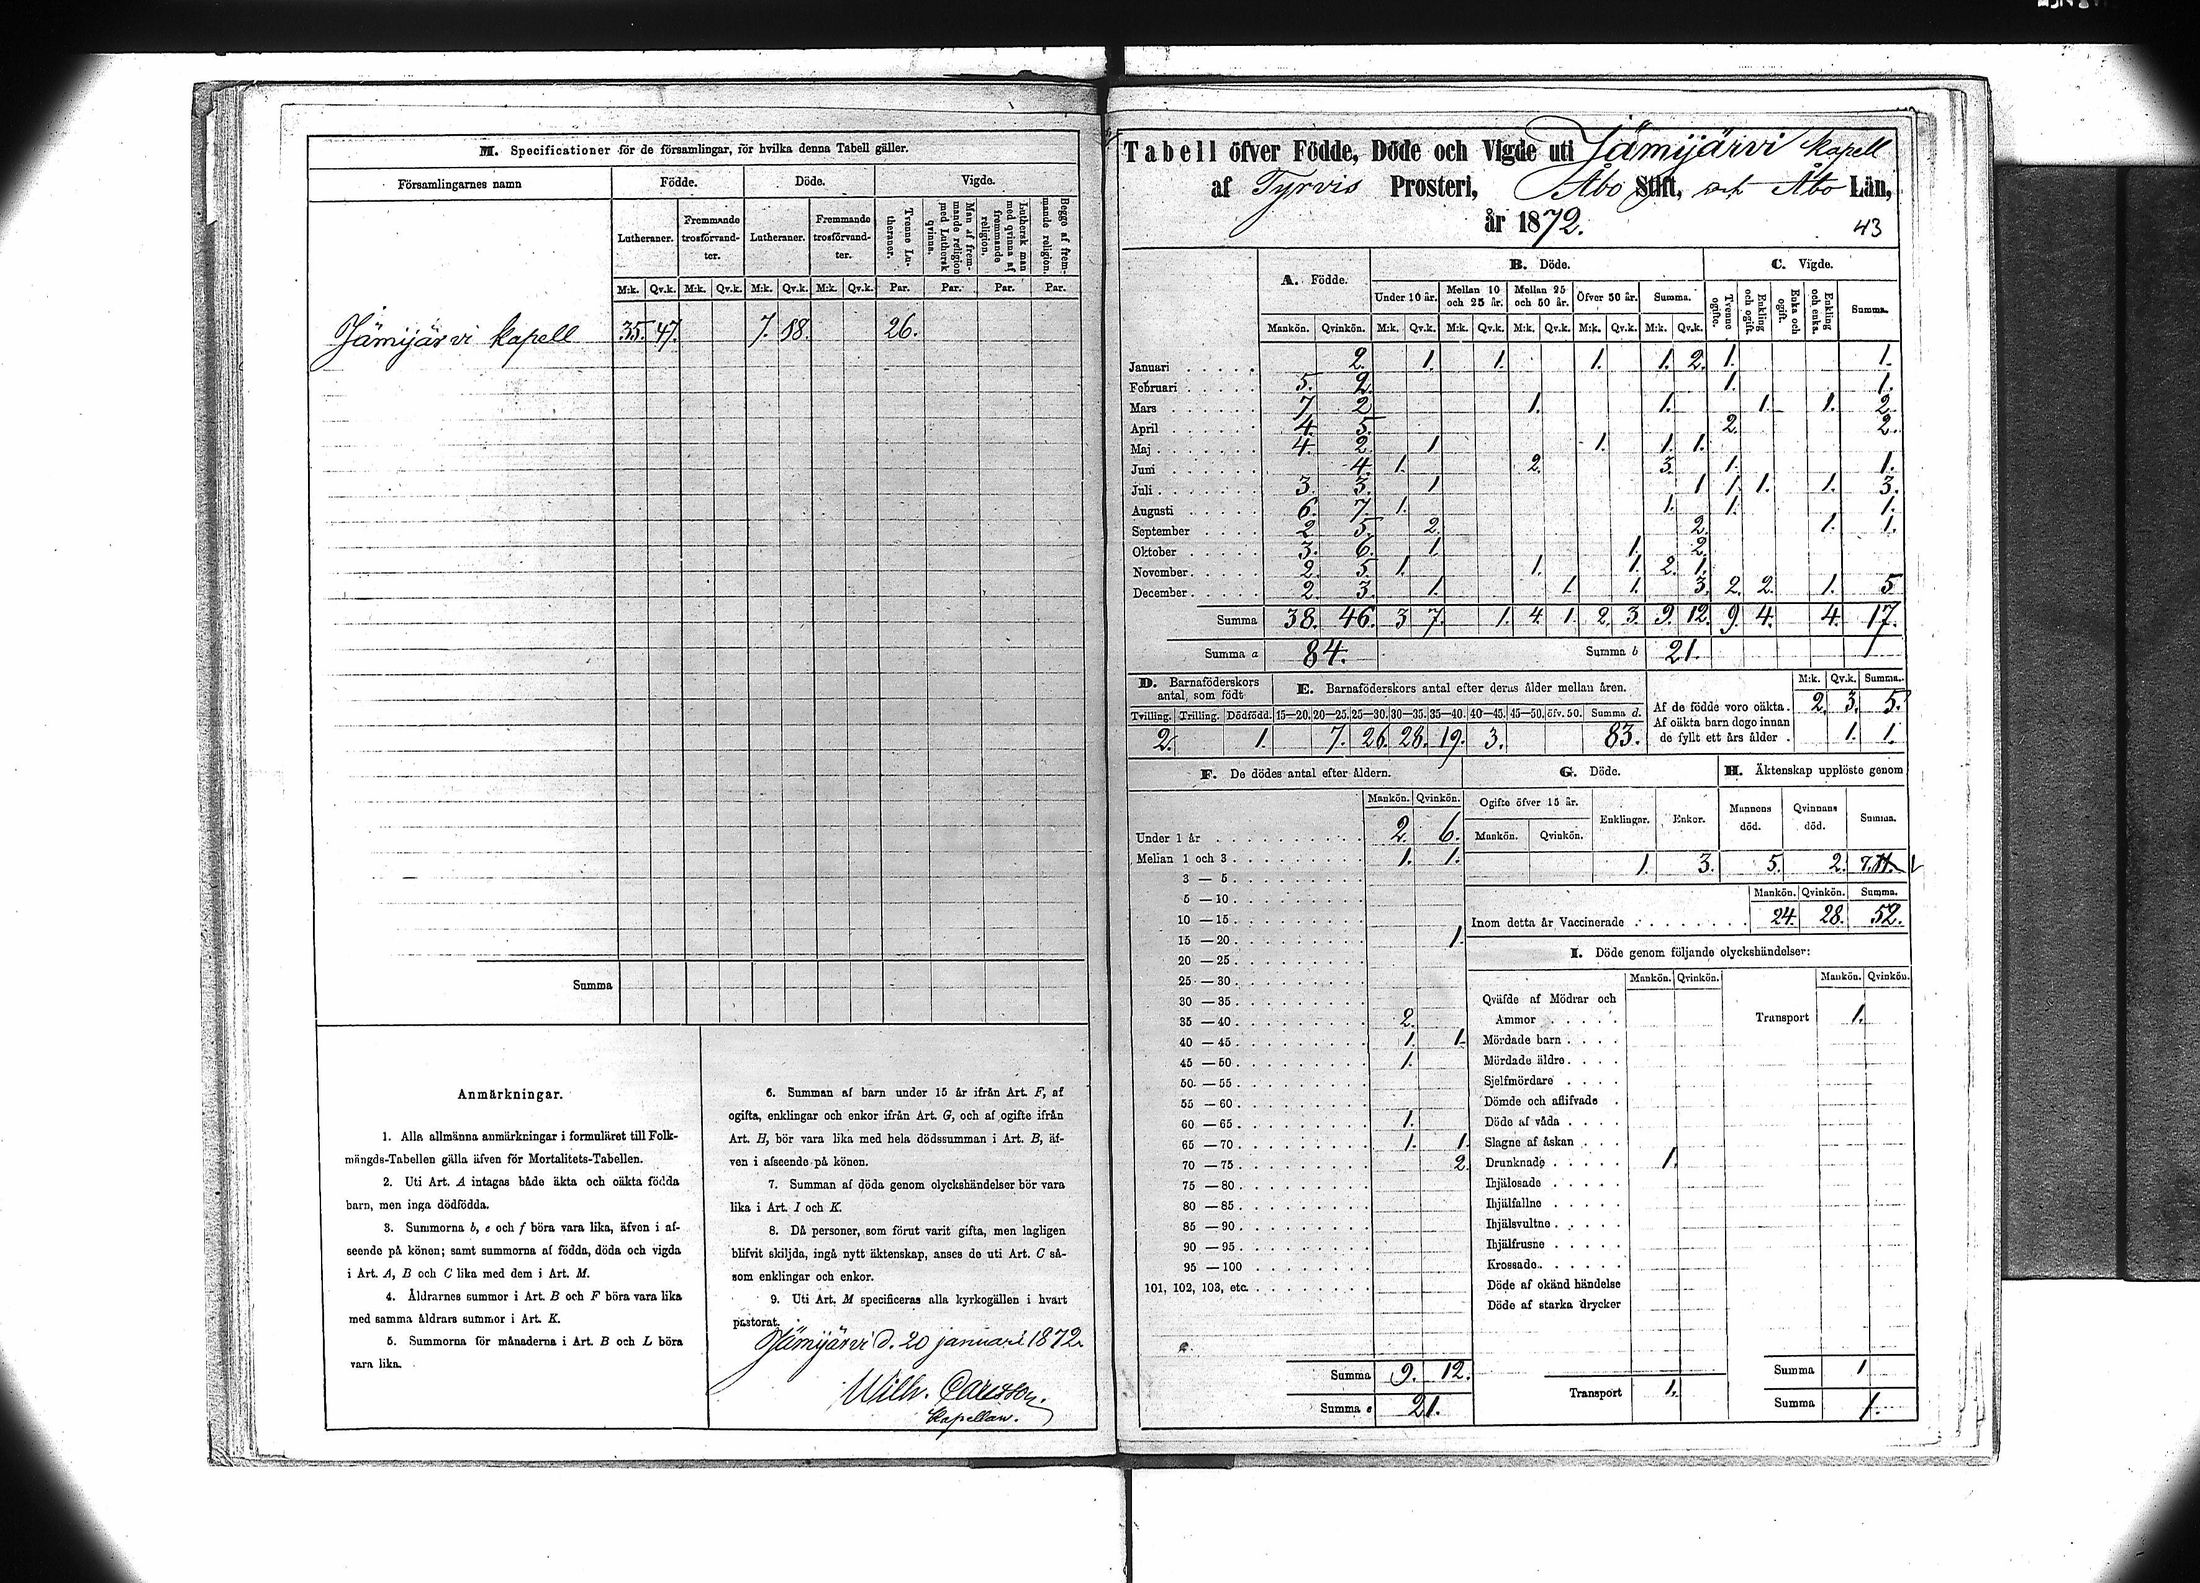 M. Specificationer för de församlingar, för hvilka denna Tabell gäller.
Församlingarnes namn Födde. Döde. Vigde.
Lutheraner. Fremmande trosförvandter. Lutheraner. Fremmande trosförvandter. Tvenne Lutheraner. Man af fremmande religion med Luthersk qvinna. Luthersk man med qvinna af fremmande religion. Begge af fremmande religion.
M:k. Qv.k. M:k. Qv.k. M:k. Qv.k. M:k. Qv.k. Par. Par. Par. Par.
Jämijärvi kapell 35. 47. 7. 18. 26.
Summa
Anmärkningar.
1. Alla allmänna anmärkningar i formuläret till Folk-
mängds-Tabellen gälla äfven för Mortalitets-Tabellen.
2. Uti Art. A intagas både äkta och oäkta födda
barn, men inga dödfödda.
3. Summorna b, e och f böra vara lika, äfven i af-
seende på könen; samt summorna af födda, döda och vigda
i Art. A, B och C lika med dem i Art. M.
4. Åldrarnes summor i Art. B och F böra vara lika
med samma åldrars summor i Art. K.
5. Summorna för månaderna i Art. B och L böra
vara lika.
6. Summan af barn under 15 år ifrån Art. F, af
ogifta, enklingar och enkor ifrån Art. G, och af ogifte ifrån
Art. H, bör vara lika med hela dödssumman i Art. B, äf-
ven i afseende på könen.
7. Summan af döda genom olyckshändelser bör vara
lika i Art. I och K.
8. Då personer, som förut varit gifta, men lagligen
blifvit skiljda, ingå nytt äktenskap, anses de uti Art. C så-
som enklingar och enkor.
9. Uti Art. M specificeras alla kyrkogällen i hvart
pastorat.
Jämijärvi d. 20 januari 1872.
Wilh. Carlsson.
kapellan.
Tabell öfver Födde, Döde och Vigde uti Jämijärvi kapell
af Tyrvis Prosteri, Åbo Stift, och Åbo Län,
år 1872.
43
A. Födde. B. Döde. C. Vigde.
Under 10 år. Mellan 10 och 25 år. Mellan 25 och 50 år. Öfver 50 år. Summa. Tvenne ogifte. Enkling och ogift. Enka och ogift. Enkling och enka. Summa.
Mankön. Qvinkön. M:k. Qv.k. M:k. Qv.k. M:k. Qv.k. M:k. Qv.k. M:k. Qv.k.
Januari 2. 1. 1. 1. 1. 2. 1. 1.
Februari 5. 2 1. 1.
Mars 7. 2 1. 1. 1. 1. 2.
April 4. 5. 2. 2.
Maj 4. 2. 1 1. 1. 1.
Juni 4. 1. 2. 3. 1. 1.
Juli 3. 3. 1 1 1. 1. 1. 3.
Augusti 6. 7. 1. 1. 1. 1.
September 2 5. 2. 2. 1. 1.
Oktober 3. 6. 1. 1. 2.
November 2. 5. 1. 1. 1. 2. 1.
December 2. 3. 1. 1. 1. 3. 2. 2. 1. 5
Summa 38. 46. 3 7. 1. 4. 1. 2. 3. 9. 12. 9. 4. 4. 17.
Summa a 84. Summa b 21.
D. Barnaföderskors antal, som födt
E. Barnaföderskors antal efter deras ålder mellan åren.
Tvilling. Trilling. Dödfödd. 15—20. 20—25. 25—30. 30—35. 35—40. 40—45. 45—50. öfv. 50. Summa d.
2. 1. 7. 26. 28. 19. 3. 83.
M:k. Qv.k. Summa.
Af de födde voro oäkta. 2. 3. 5.
Af oäkta barn dogo innan
de fyllt ett års ålder 1. 1.
F. De dödes antal efter åldern.
Mankön. Qvinkön.
Under 1 år 2. 6.
Mellan 1 och 3 1. 1.
3 — 5
5 — 10
10 — 15
15 — 20 1.
20 — 25
25 — 30
30 — 35
35 — 40 2.
40 — 45 1. 1.
45 — 50 1.
50 — 55
55 — 60
60 — 65 1.
65 — 70 1. 1.
70 — 75 2.
75 — 80
80 — 85
85 — 90
90 — 95
95 — 100
101, 102, 103, etc.
Summa 9. 12.
Summa e 21.
G. Döde.
Ogifte öfver 15 år. Enklingar. Enkor.
Mankön. Qvinkön.
1. 3.
H. Äktenskap upplöste genom
Mannens död. Qvinnans död. Summa.
5. 2. 7.
Mankön. Qvinkön. Summa.
Inom detta år Vaccinerade 24. 28. 52.
I. Döde genom följande olyckshändelser:
Mankön. Qvinkön. Mankön. Qvinkön.
Qväfde af Mödrar och
Ammor Transport 1.
Mördade barn
Mördade äldre
Sjelfmördare
Dömde och aflifvade
Döde af våda
Slagne af åskan
Drunknade 1.
Ihjälosade
Ihjälfallne
Ihjälsvultne
Ihjälfrusne
Krossade
Döde af okänd händelse
Döde af starka drycker
Transport 1. Summa 1
Summa 1.